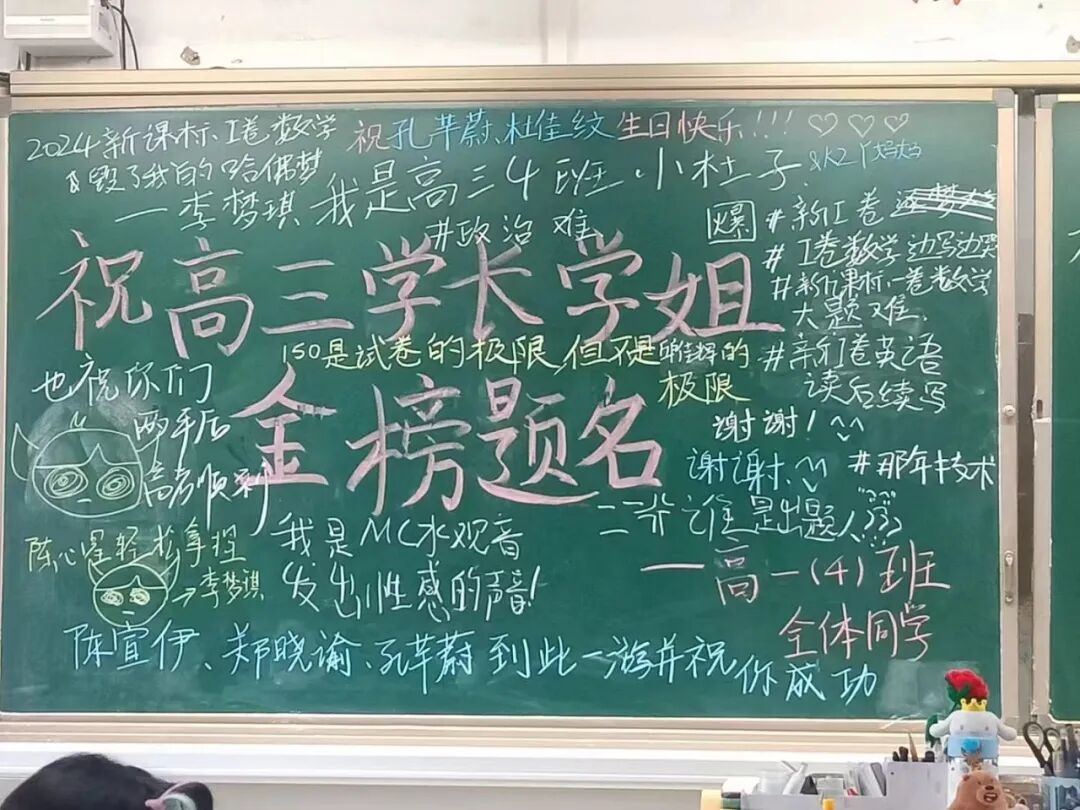 2024新课标I卷数学
毁了我的哈佛梦
一李梦琪
祝孔芊蔚、杜佳纹生日快乐!!!♡♡♡
我是高三4班小杜子
#政治难
爆
#新I卷
#I卷数学边写边哭
#新课标一卷数学
大题难
#新I卷英语
读后续写
谢谢!
谢谢
#那年技术
祝高三学长学姐
150是试卷的极限但不是
的
极限
金榜题名
也祝你们
两年后
高考顺利
二卷谁是出题人???
陈心星轻松拿捏
→李梦琪
我是MC水观音
发出性感的声音!
一高一(4)班
全体同学
陈宣伊、郑晓谕、孔芊蔚到此一游并祝你成功